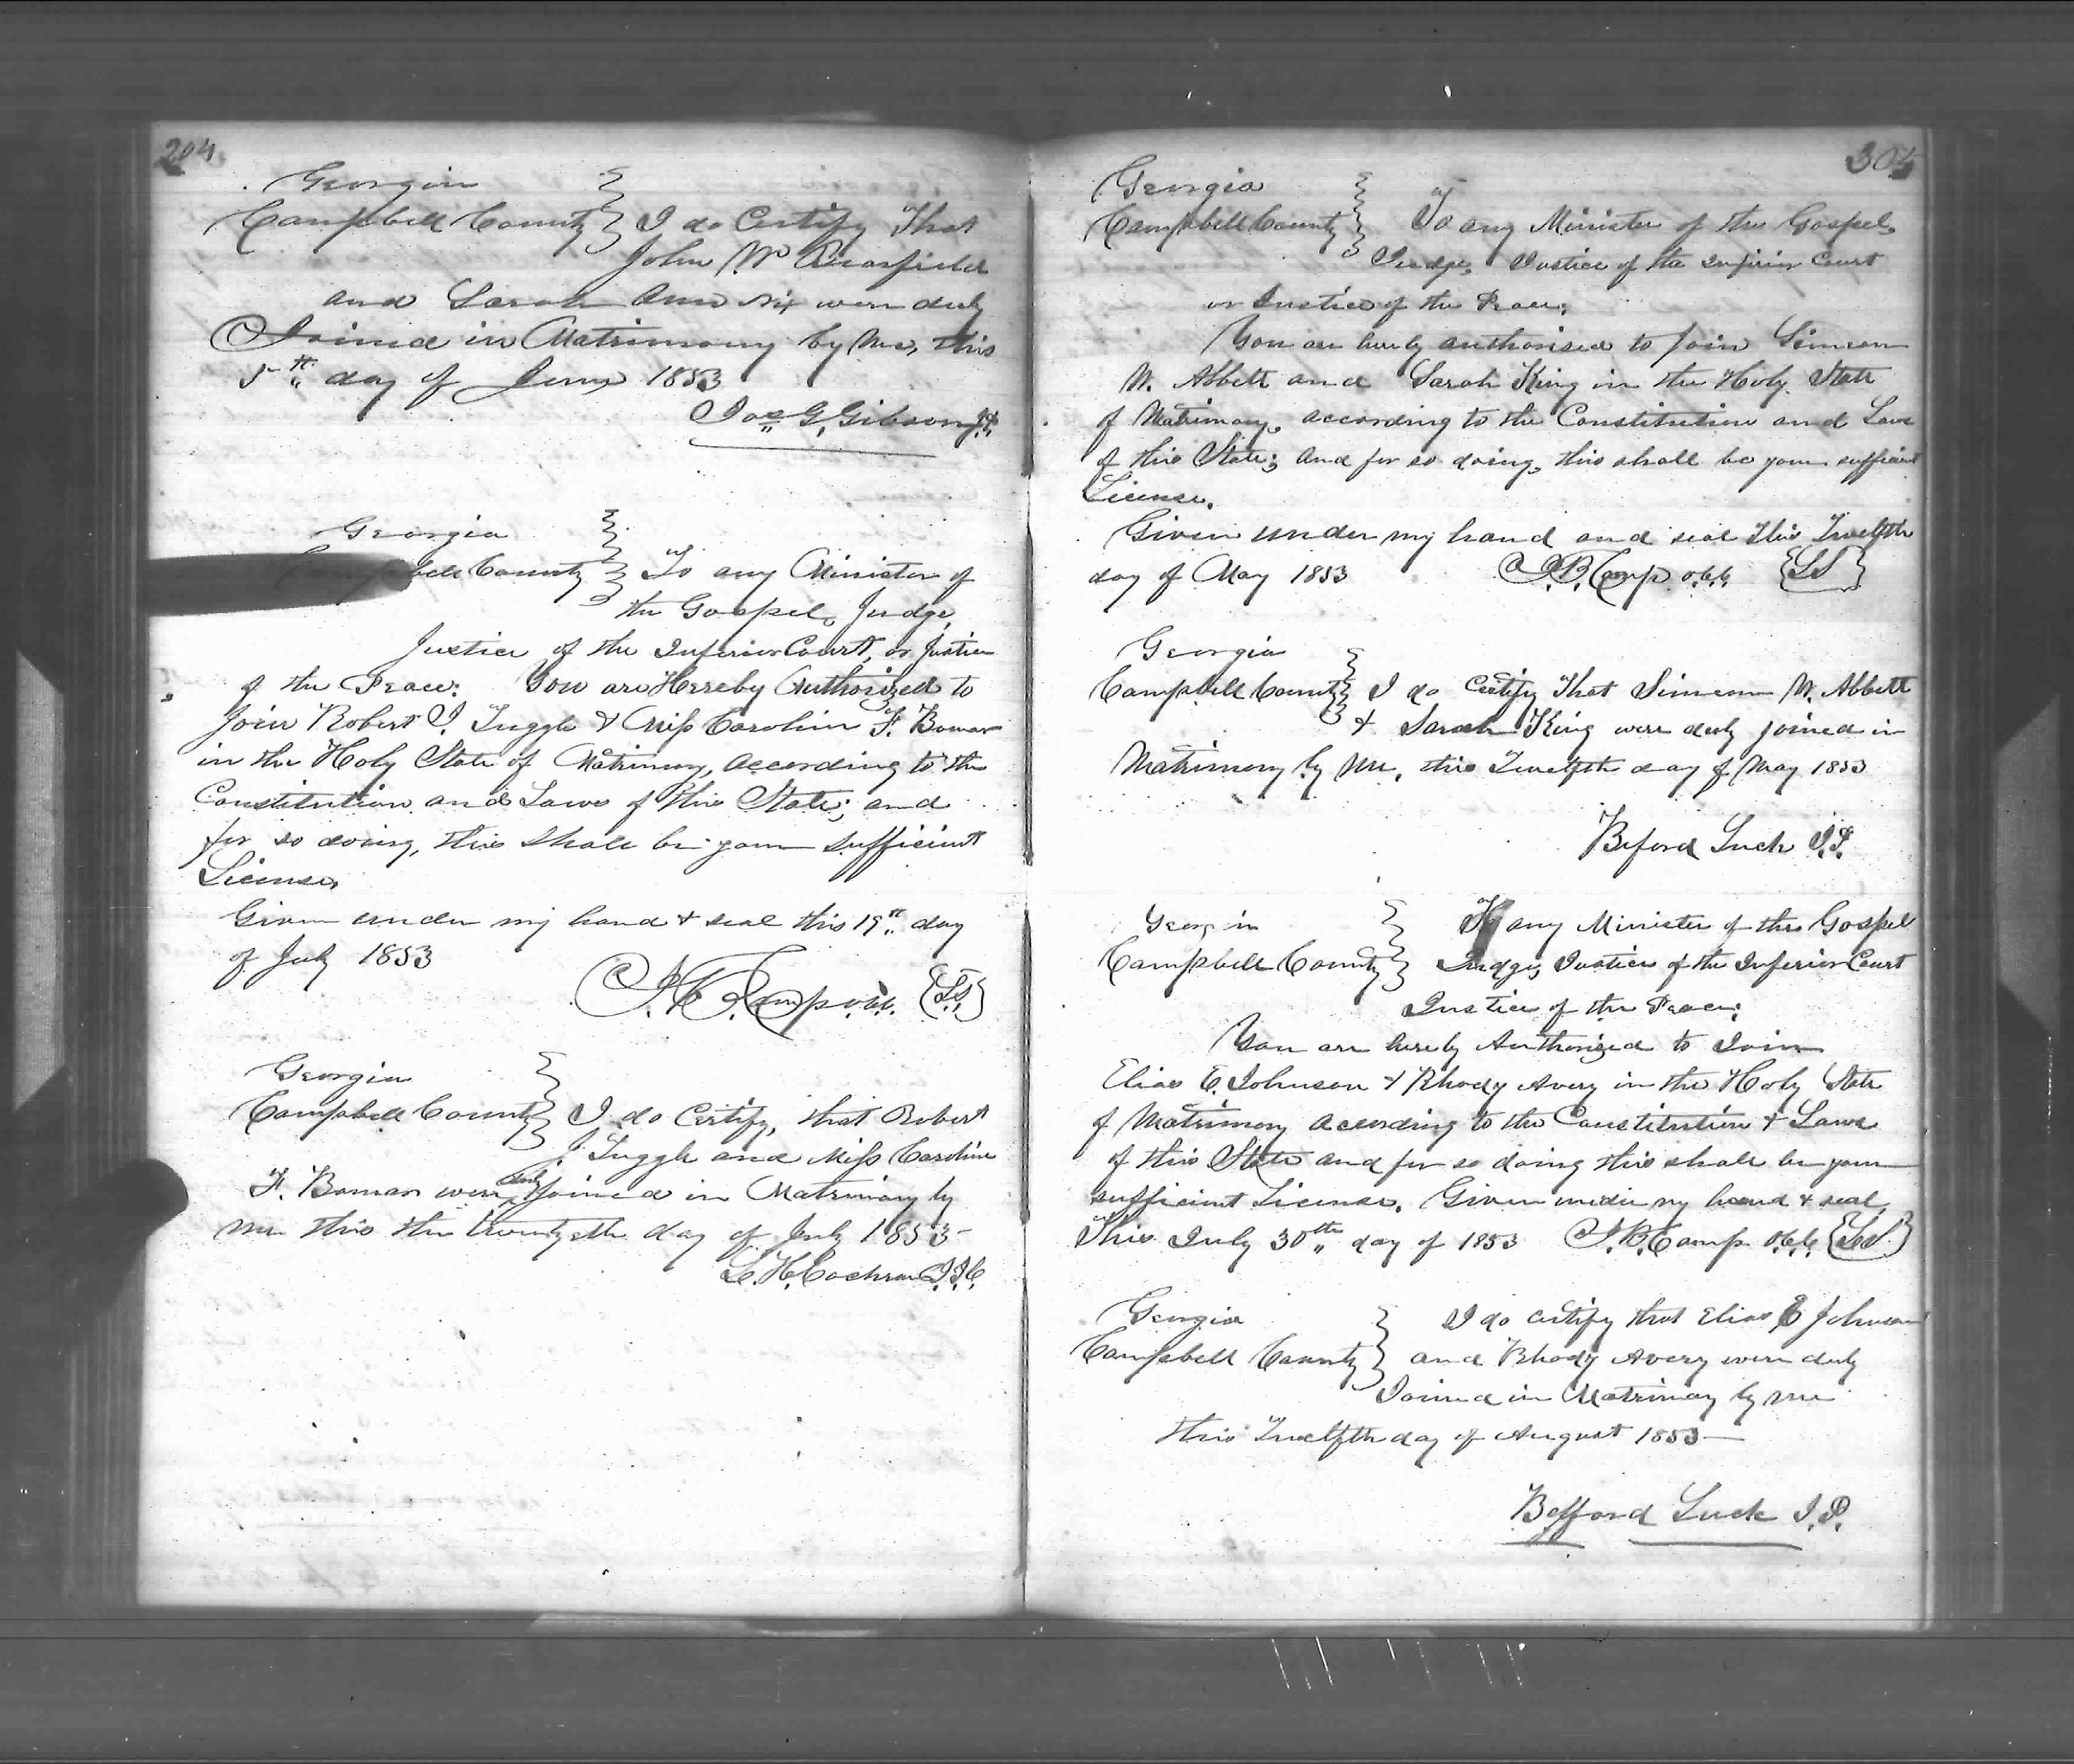 204
Georgia
Campbell County } I do Certify That
John W
and Sarah Ann Nix were duly
Joined in Matrimony by me, this
5th day of June 1853
Jos G. Gibson
Georgia
County } To any Minister of
the Gospel, Judge,
Justice of the Inferior Court, or Justice
of the Peace: You are Hereby Authorized to
Join Robert J. Tuggle & Miss Carolin F. Bomar
in the Holy State of Matrimony, according to the
Constitution and Laws of this State; and
for so doing, this shall be your sufficient
License,
Given under my hand & seal this 19th day
of July 1853
Camp o.c.c. {LS}
Georgia
Campbell County } I do Certify, that Robert
J Tuggle and Miss Caroline
F. Bomar were duly joined in Matrimony by
me this the twentyeth day of July 1853-
L. H. Cochran J.I.C.
305
Georgia
Campbell County } To any Minister of the Gospel,
Judge, Justice of the Inferior Court
or Justice of the Peace;
You are hereby authorised to join Simeon
W. Abbett and Sarah King in the Holy State
of Matrimony, according to the Constitution and Laws
of this State; and for so doing, this shall be your sufficient
License.
Given under my hand and seal This Twelfth
day of May 1853 J.B. Camp o.c.c. {LS}
Georgia
Campbell County } I do Certify That Simeon W. Abbett
& Sarah King were duly joined in
Matrimony by me, this Twelfth day of May 1853
Beford Luck J.P.
Georgia } To any Minister of the Gospel
Campbell County } Judge, Justice of the Inferior Court
Justice of the Peace:
You are hereby Authorized to Join
Elias E. Johnson & Rhody Avery in the Holy State
of Matrimony according to the Constitution & Laws
of this State and for so doing this shall be your
sufficient License. Given under my hand & seal,
This July 30th day of 1853 J.B. Camp o.c.c. {LS}
Georgia } I do certify that Elias E Johnson
Campbell County } and Rhody Avery were duly
Joined in Matrimony by me
this Twelfth day of August 1853-
Befford Luck J.P.